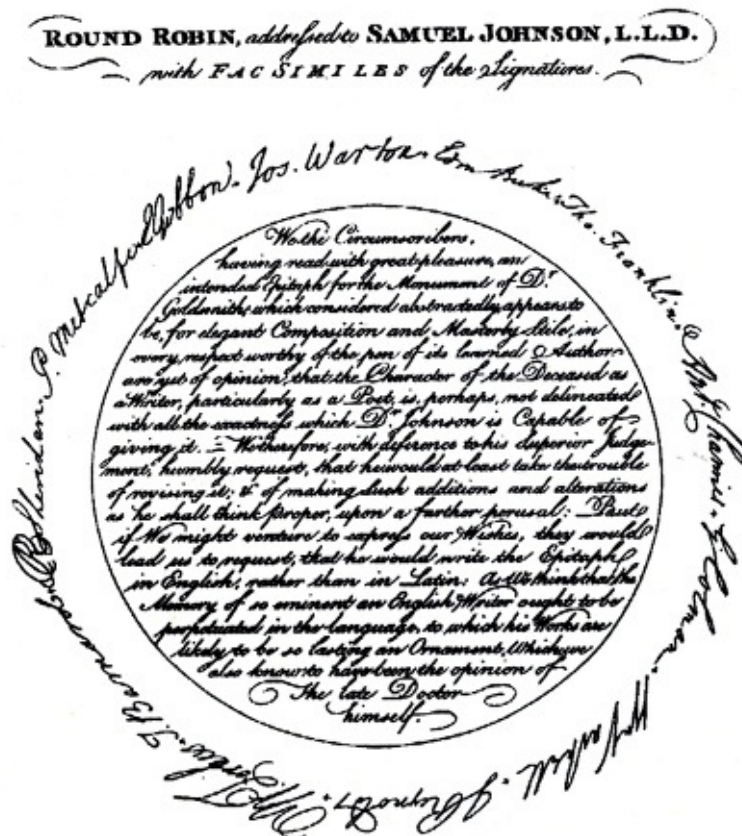 ROUND ROBIN, addressed to SAMUEL JOHNSON, L.L.D.
with FACSIMILES of the Signatures.
We the Circumscribers,
having read with great pleasure, an
intended Epitaph for the Monument of Dr.
Goldsmith; which considered abstractedly, appears to
be, for elegant Composition and Masterly Stile, in
every respect worthy of the pen of its learned Author;
are yet of opinion, that the Character of the Deceased as
a Writer, particularly as a Poet, is, perhaps, not delineated
with all the exactness which Dr. Johnson is Capable of
giving it. — We therefore, with deference to his superior Judge-
ment, humbly request, that he would at least take the trouble
of revising it; & of making such additions and alterations
as he shall think proper, upon a farther perusal: But
if We might venture to express our Wishes, they would
lead us to request, that he would write the Epitaph
in English, rather than in Latin: As We think that the
Memory of so eminent an English Writer ought to be
perpetuated in the language, to which his Works are
likely to be so lasting an Ornament, Which we
also know to have been the opinion of
the late Doctor
himself.
Jos. Warton.
Edm. Burke.
Tho. Franklin.
Ant. Chamier.
G. Colman.
W. Vachell.
J. Reynolds.
W. Forbes.
T. Barnard.
R. B. Sheridan.
P. Metcalfe.
E. Gibbon.